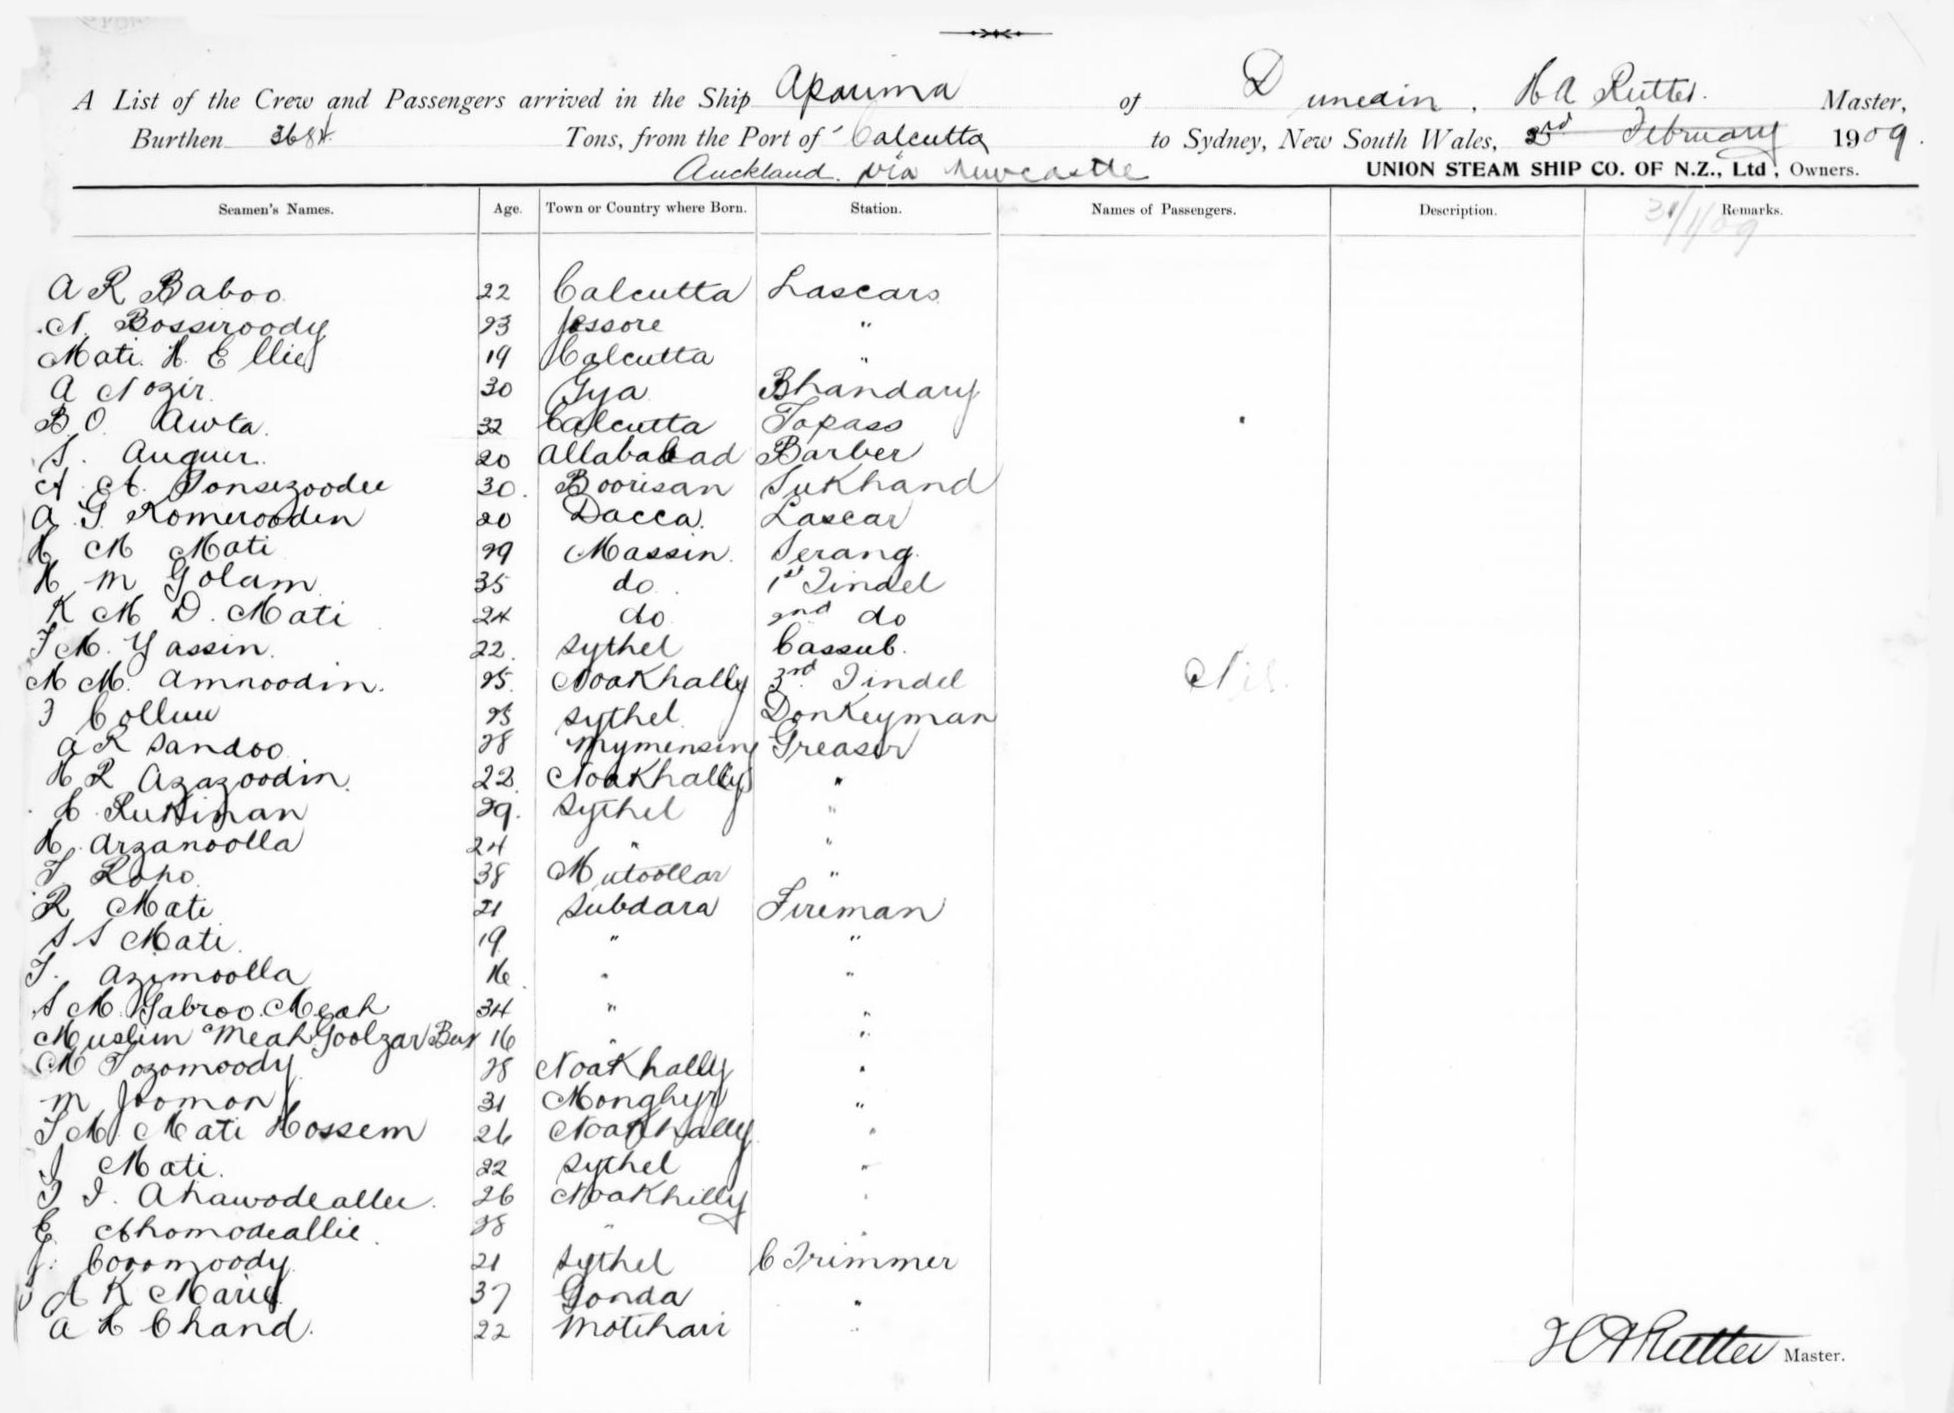 A List of the Crew and Passengers arrived in the Ship Aparima of Dunedin, H A Rutter. Master,
Burthen 3684 Tons, from the Port of Calcutta to Sydney, New South Wales, 3rd February 1909.
Auckland. via Newcastle UNION STEAM SHIP CO. OF N.Z., Ltd, Owners.
Seamen's Names. Age. Town or Country where Born. Station. Names of Passengers. Description. Remarks.
31/1/09
A R Baboo 22 Calcutta Lascars
N. Bossiroody 23 Jessore "
Mati. H. Ellie 19 Calcutta "
A Nozir 30 Gya Bhandary
B. O. Awta. 32 Calcutta Topass
S. Auguir. 20 Allababad Barber
A. A. Tonsezoodee 30. Boorisan Sukhand
A. G. Komeroodin 20 Dacca. Lascar
H M Mati 29 Massin. Serang.
H M Golam 35 do. 1st Tindel
K M D. Mati 24 do 2nd do
T M. Yassin. 22. Sythel Cassub.
M M. Amnoodin. 25. Noakhally 3rd Tindel
Nil.
25 Sythel. Donkeyman
A R Sandoo 28 Mymensing Greaser
H R Azazoodin. 22. Noakhally "
29. Sythel "
H. Arzanoolla 24 " "
T 38 Mutoollar "
R Mati 21 Subdara Fireman
S S Mati. 19. " "
T. Azimoolla 16. " "
S M Gabroo Meah 34 " "
Muslim Meah Goolzar Bux 16 " "
M Tozomoody 28 Noakhally "
M Joomon 31 Monghyr "
T M Mati Hossem 26 Noakhally "
J Mati. 22 Sythel "
I I. Ahawodeallee. 26 Noakhilly "
E. Ahomodeallie. 28 " "
J. Coromoody 21 Sythel C Trimmer
A K Marie 37 Gonda "
A H Chand. 22 Motihari "
H A Rutter Master.